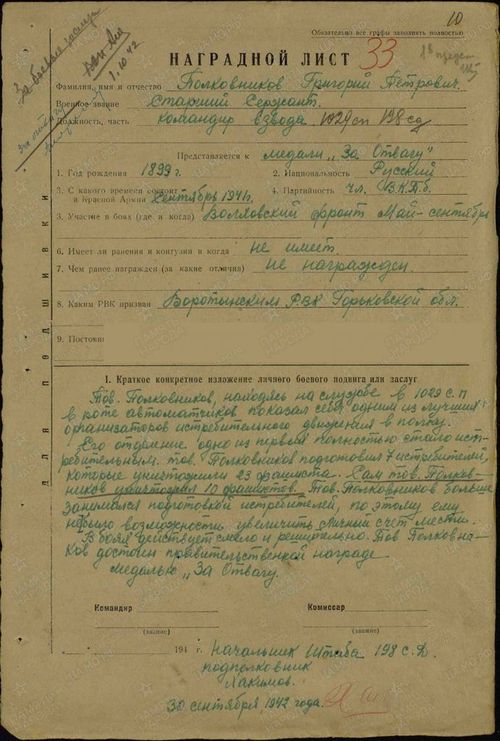 10
Обязательно все графы заполнять полностью
За боевые заслуги
1.10.42
НАГРАДНОЙ ЛИСТ 33
Фамилия, имя и отчество Полковников Григорий Петрович.
Военное звание Старший Сержант.
Должность, часть командир взвода 1029 сп 198 сд
Представляется к медали „За Отвагу"
1. Год рождения 1899 г. 2. Национальность Русский
3. С какого времени состоит в Красной Армии Сентябрь 1941 г. 4. Партийность чл. В.К.П.б.
5. Участие в боях (где и когда) Волховский фронт Май-сентябрь
6. Имеет ли ранения и контузии и когда не имеет.
7. Чем ранее награжден (за какие отличия) не награжден.
8. Каким РВК призван Воротынским РВК Горьковской обл.
9. Постоян
ДЛЯ ПОДШИВКИ
I. Краткое конкретное изложение личного боевого подвига или заслуг
Тов. Полковников, находясь на службе в 1029 с.п
в роте автоматчиков показал себя одним из лучших
организаторов истребительного движения в полку.
Его отделение одно из первых полностью стало ист-
ребительным. тов. Полковников подготовил 7 истребителей,
которые уничтожили 23 фашиста. Сам тов. Полков-
ников уничтожил 10 фашистов. Тов. Полковников больше
занимался подготовкой истребителей, по этому ему
не было возможности увеличить личный счет мести.
В боях действует смело и решительно. Тов Полковни-
ков достоин правительственной награде
медалью „За Отвагу.
Командир Комиссар
(звание) (звание)
194 г. Начальник Штаба 198 с.д.
подполковник
Лакимов.
30 сентября 1942 года.